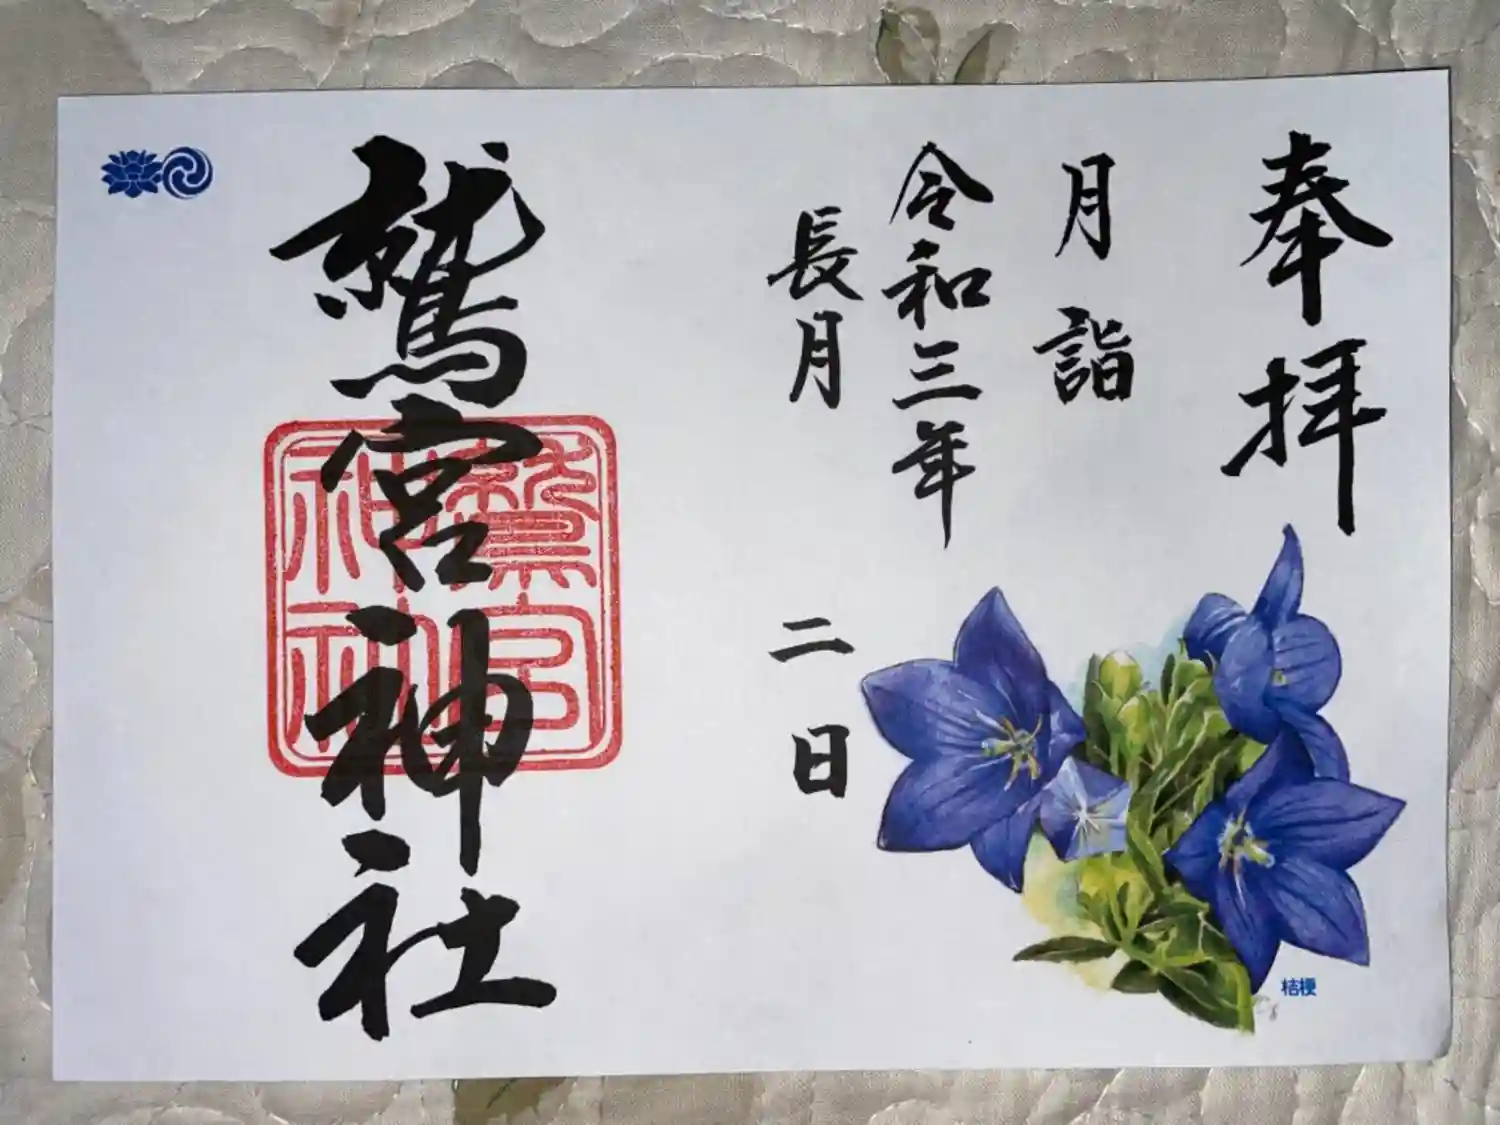 奉拝
月詣
令和三年
長月 二日
鷲宮神社
鷲宮神社
桔梗